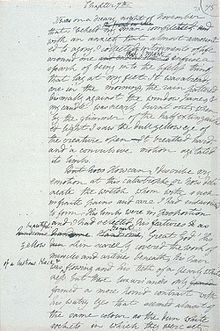 Chapter 7th
It was on a dreary night of November
that I beheld my man compleated and
with an anxiety that almost amounted
to agony I collected instruments of life
around me that I might infuse a
spark of being into the lifeless thing
that lay at my feet. It was already
one in the morning, the rain pattered
dismally against the window panes, &
my candle was nearly burnt out, when
by the glimmer of the half extinguish
ed light I saw the dull yellow eye of
the creature open — It breathed hard,
and a convulsive motion agitated
its limbs.
But how How can I describe my
emotion at this catastrophe; or how deli
neate the wretch whom with such in
finite pains and care I had endeavoured
to form. His limbs were in proportion
and I had selected his features as
handsome. Handsome Great God! His
yellow skin scarcely covered the work of
muscles and arteries beneath; his hair
of a lustrous black &
was flowing and his teeth of a pearly white
ness but these luxuriances only
formed a more horrid contrast with
his watry eyes that seemed almost of
the same colour as the dun white
sockets in which they were set